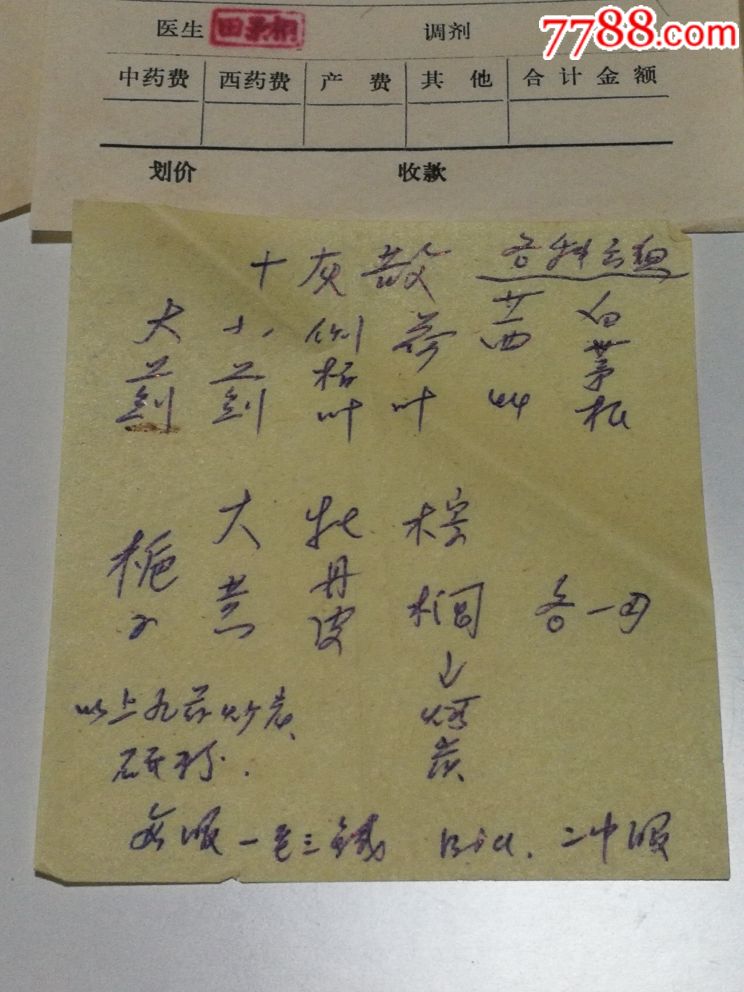 7788.com
医生 调剂
中药费 西药费 产费 其他 合计金额
划价 收款
十灰散 各种出血
大蓟 小蓟 侧柏叶 荷叶 茜草 白茅根
栀子 大黄 牡丹皮 棕榈 各一
以上九药炒炭
研粉.
煅炭
每服一至三钱 Bid.